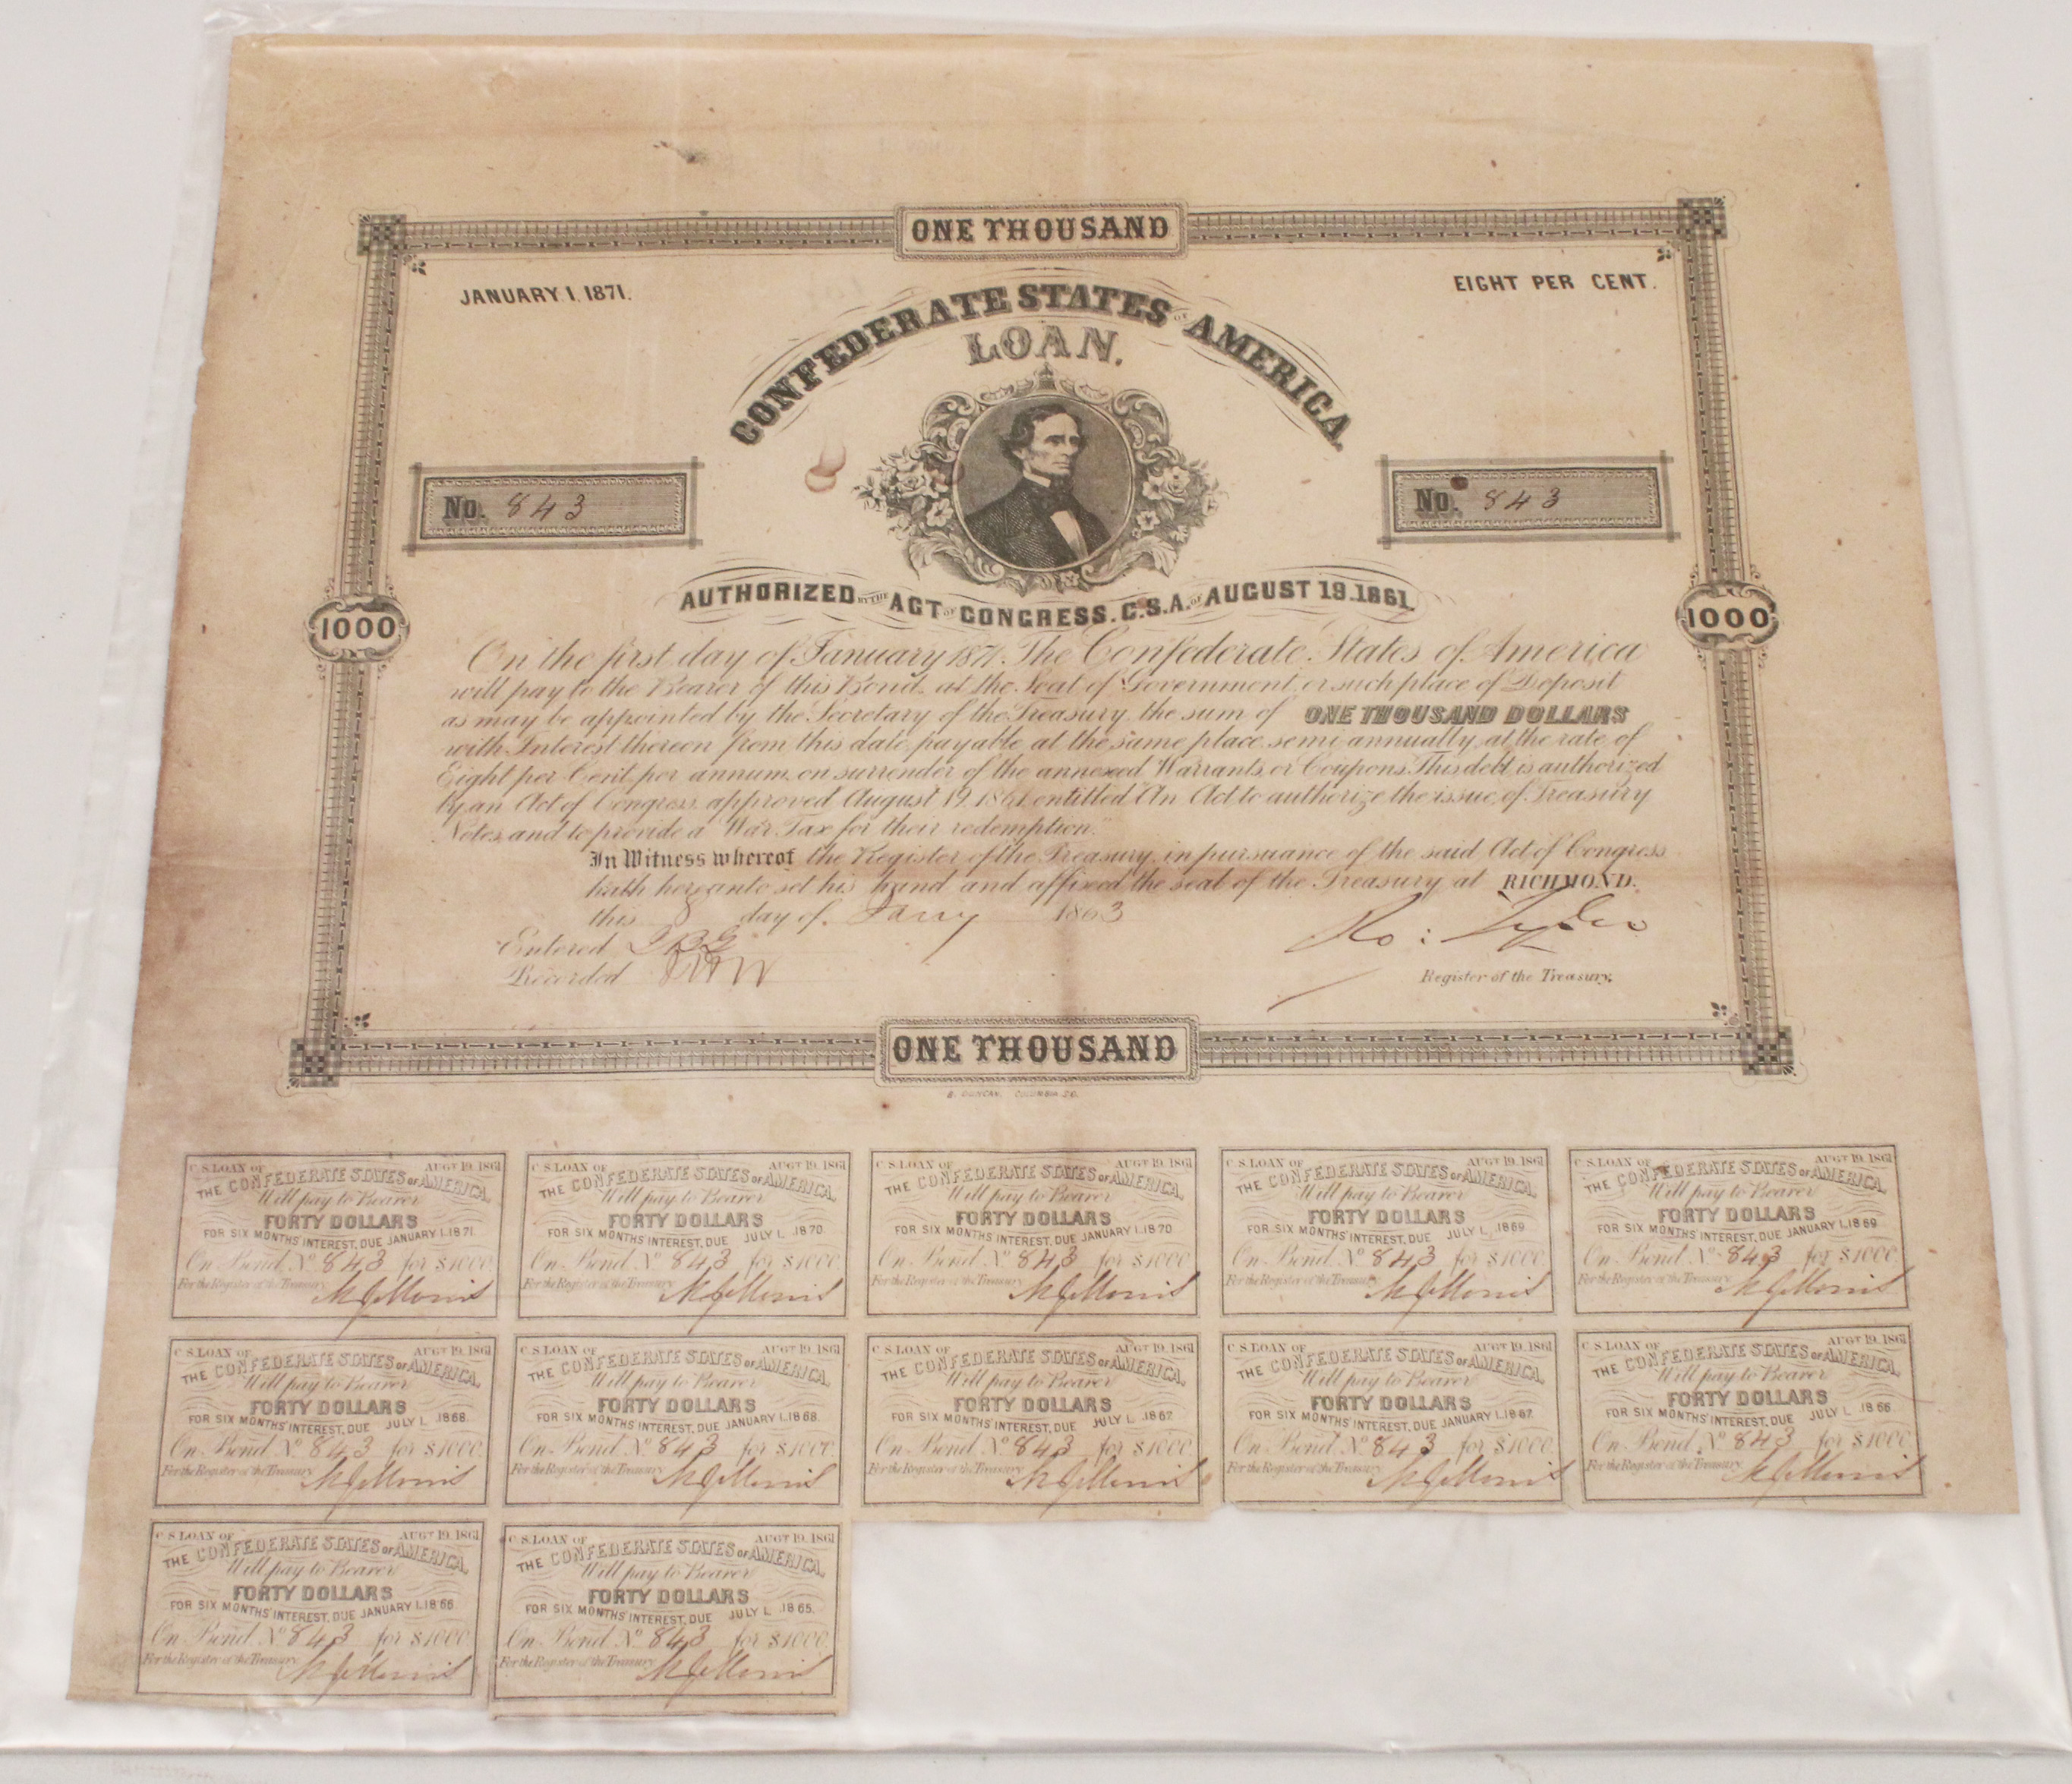 ONE THOUSAND
JANUARY 1. 1871.
EIGHT PER CENT.
CONFEDERATE STATES OF AMERICA.
LOAN.
No. 843
No. 843
AUTHORIZED BY THE ACT OF CONGRESS. C.S.A. OF AUGUST 19.1861.
1000
1000
On the first day of January 1871. The Confederate States of America
will pay to the Bearer of this Bond, at the Seat of Government, or such place of Deposit
as may be appointed by the Secretary of the Treasury, the sum of ONE THOUSAND DOLLARS
with Interest thereon from this date, payable at the same place, semi annually, at the rate of
Eight per Cent. per annum, on surrender of the annexed Warrants or Coupons. This debt is authorized
by an Act of Congress, approved August 19. 1861, entitled "An Act to authorize the issue of Treasury
Notes, and to provide a War Tax for their redemption."
In Witness whereof the Register of the Treasury, in pursuance of the said Act of Congress
hath hereunto set his hand and affixed the seal of the Treasury at RICHMOND.
this 8 day of Jany 1863
Entered
Recorded
Ro: Tyler
Register of the Treasury.
ONE THOUSAND
B. DUNCAN, COLUMBIA S.C.
C. S. LOAN OF AUGT 19. 1861
THE CONFEDERATE STATES OF AMERICA.
Will pay to Bearer
FORTY DOLLARS
FOR SIX MONTHS' INTEREST, DUE JANUARY 1.1871.
On Bond No 843 for $1000.
For the Register of the Treasury
C. S. LOAN OF AUGT 19. 1861
THE CONFEDERATE STATES OF AMERICA.
Will pay to Bearer
FORTY DOLLARS
FOR SIX MONTHS' INTEREST, DUE JULY 1. 1870.
On Bond No 843 for $1000.
For the Register of the Treasury
C. S. LOAN OF AUGT 19. 1861
THE CONFEDERATE STATES OF AMERICA.
Will pay to Bearer
FORTY DOLLARS
FOR SIX MONTHS' INTEREST, DUE JANUARY 1.1870
On Bond No 843 for $1000.
For the Register of the Treasury
C. S. LOAN OF AUGT 19. 1861
THE CONFEDERATE STATES OF AMERICA.
Will pay to Bearer
FORTY DOLLARS
FOR SIX MONTHS' INTEREST, DUE JULY 1. 1869
On Bond No 843 for $1000.
For the Register of the Treasury
C. S. LOAN OF AUGT 19. 1861
THE CONFEDERATE STATES OF AMERICA.
Will pay to Bearer
FORTY DOLLARS
FOR SIX MONTHS' INTEREST, DUE JANUARY 1.1869
On Bond No 843 for $1000.
For the Register of the Treasury
C. S. LOAN OF AUGT 19. 1861
THE CONFEDERATE STATES OF AMERICA.
Will pay to Bearer
FORTY DOLLARS
FOR SIX MONTHS' INTEREST, DUE JULY 1. 1868.
On Bond No 843 for $1000.
For the Register of the Treasury
C. S. LOAN OF AUGT 19. 1861
THE CONFEDERATE STATES OF AMERICA.
Will pay to Bearer
FORTY DOLLARS
FOR SIX MONTHS' INTEREST, DUE JANUARY 1.1868.
On Bond No 843 for $1000.
For the Register of the Treasury
C. S. LOAN OF AUGT 19. 1861
THE CONFEDERATE STATES OF AMERICA.
Will pay to Bearer
FORTY DOLLARS
FOR SIX MONTHS' INTEREST, DUE JULY 1. 1867
On Bond No 843 for $1000.
For the Register of the Treasury
C. S. LOAN OF AUGT 19. 1861
THE CONFEDERATE STATES OF AMERICA.
Will pay to Bearer
FORTY DOLLARS
FOR SIX MONTHS' INTEREST, DUE JANUARY 1.1867.
On Bond No 843 for $1000.
For the Register of the Treasury
C. S. LOAN OF AUGT 19. 1861
THE CONFEDERATE STATES OF AMERICA.
Will pay to Bearer
FORTY DOLLARS
FOR SIX MONTHS' INTEREST, DUE JULY 1. 1866.
On Bond No 843 for $1000.
For the Register of the Treasury
C. S. LOAN OF AUGT 19. 1861
THE CONFEDERATE STATES OF AMERICA.
Will pay to Bearer
FORTY DOLLARS
FOR SIX MONTHS' INTEREST, DUE JANUARY 1.1866
On Bond No 843 for $1000.
For the Register of the Treasury
C. S. LOAN OF AUGT 19. 1861
THE CONFEDERATE STATES OF AMERICA.
Will pay to Bearer
FORTY DOLLARS
FOR SIX MONTHS' INTEREST, DUE JULY 1. 1865.
On Bond No 843 for $1000.
For the Register of the Treasury